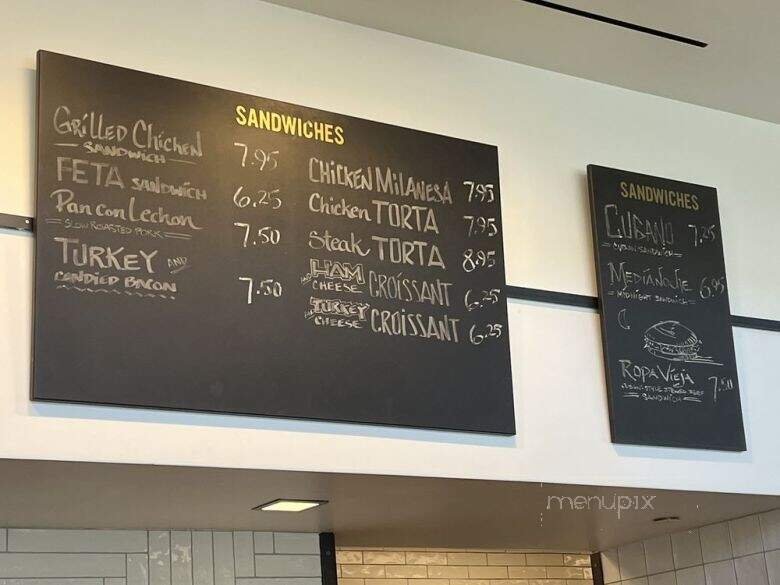 SANDWICHES
GRILLED Chicken 7.95
SANDWICH
FETA SANDWICH 6.25
Pan con Lechon 7.50
SLOW ROASTED PORK
TURKEY AND
CANDIED BACON 7.50
CHICKEN MILANESA 7.95
Chicken TORTA 7.95
Steak TORTA 8.95
HAM AND
CHEESE CROISSANT 6.25
TURKEY AND
CHEESE CROISSANT 6.25
SANDWICHES
CUBANO 7.25
CUBAN SANDWICH
MEDIANOCHE 6.95
MIDNIGHT SANDWICH
ROPA VIEJA 7.50
STYLE BEEF
SANDWICH
menupix